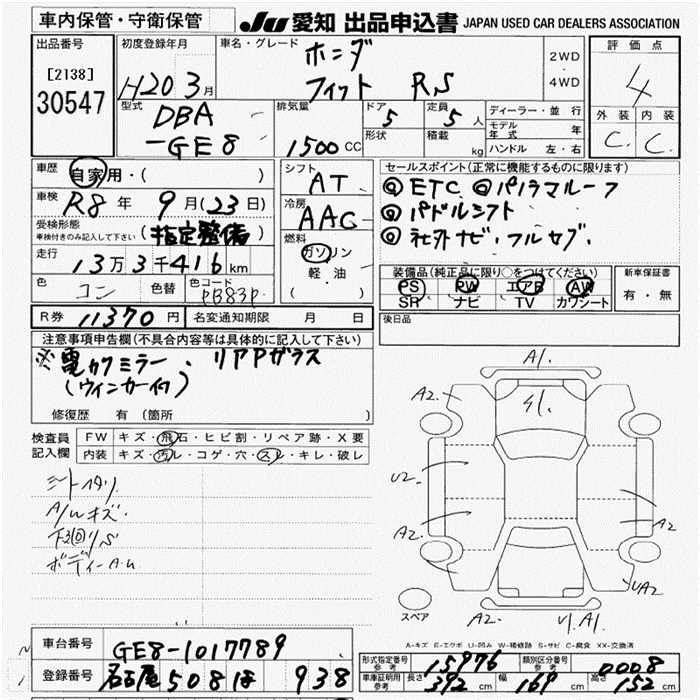 車内保管・守衛保管
JU 愛知 出品申込書 JAPAN USED CAR DEALERS ASSOCIATION
出品番号
[2138]
30547
初度登録年月
H20 3月
車名・グレード
ホンダ
フィット RS
2WD
・
4WD
評価点
4
外装 内装
C. C.
型式
DBA
-GE8
排気量
1500 CC
ドア
5
形状
定員
5人
積載 kg
ディーラー・並行
モデル年式 年
ハンドル 左・右
車歴
自家用・( )
車検
R8年 9月(23日)
受検形態
車検付きのみ記入して下さい (指定整備)
走行
13万3千416km
色
コン
色替
色コード
PB83P
シフト
AT
冷房
AAC
燃料
ガソリン
軽油
( )
セールスポイント(正常に機能するものに限ります)
◎ETC ◎パノラマルーフ
◎パドルシフト
◎社外ナビ・フルセグ.
装備品(純正品に限り○をつけてください)
PS PW エアB AW
SR ナビ TV カワシート
新車保証書
有・無
R券 11370円
名変通知期限 月 日
後日品
注意事項申告欄(不具合内容等は具体的に記入して下さい)
※電カクミラー、リアPガラス
(ウィンカー付)
修復歴 有(箇所 )
検査員
記入欄
FW キズ・飛石・ヒビ割・リペア跡・X要
内装 キズ・汚レ・コゲ・穴・スレ・キレ・破レ
シートヘタリ
A/Wキズ.
下回リS
ボディーA.U
A1.
S1.
A2.
U2
A2.
A2
UA2
A2
U1.A1
スペア
A-キズ E-エクボ U-凹み W-補修跡 S-サビ C-腐食 XX-交換済
車台番号
GE8-1017789
登録番号
名古屋 508 ほ 938
形式指定番号
参考
15976
類別区分番号
参考
0008
車庫証明用
参考
長さ 392cm 幅 169cm 高さ 152cm